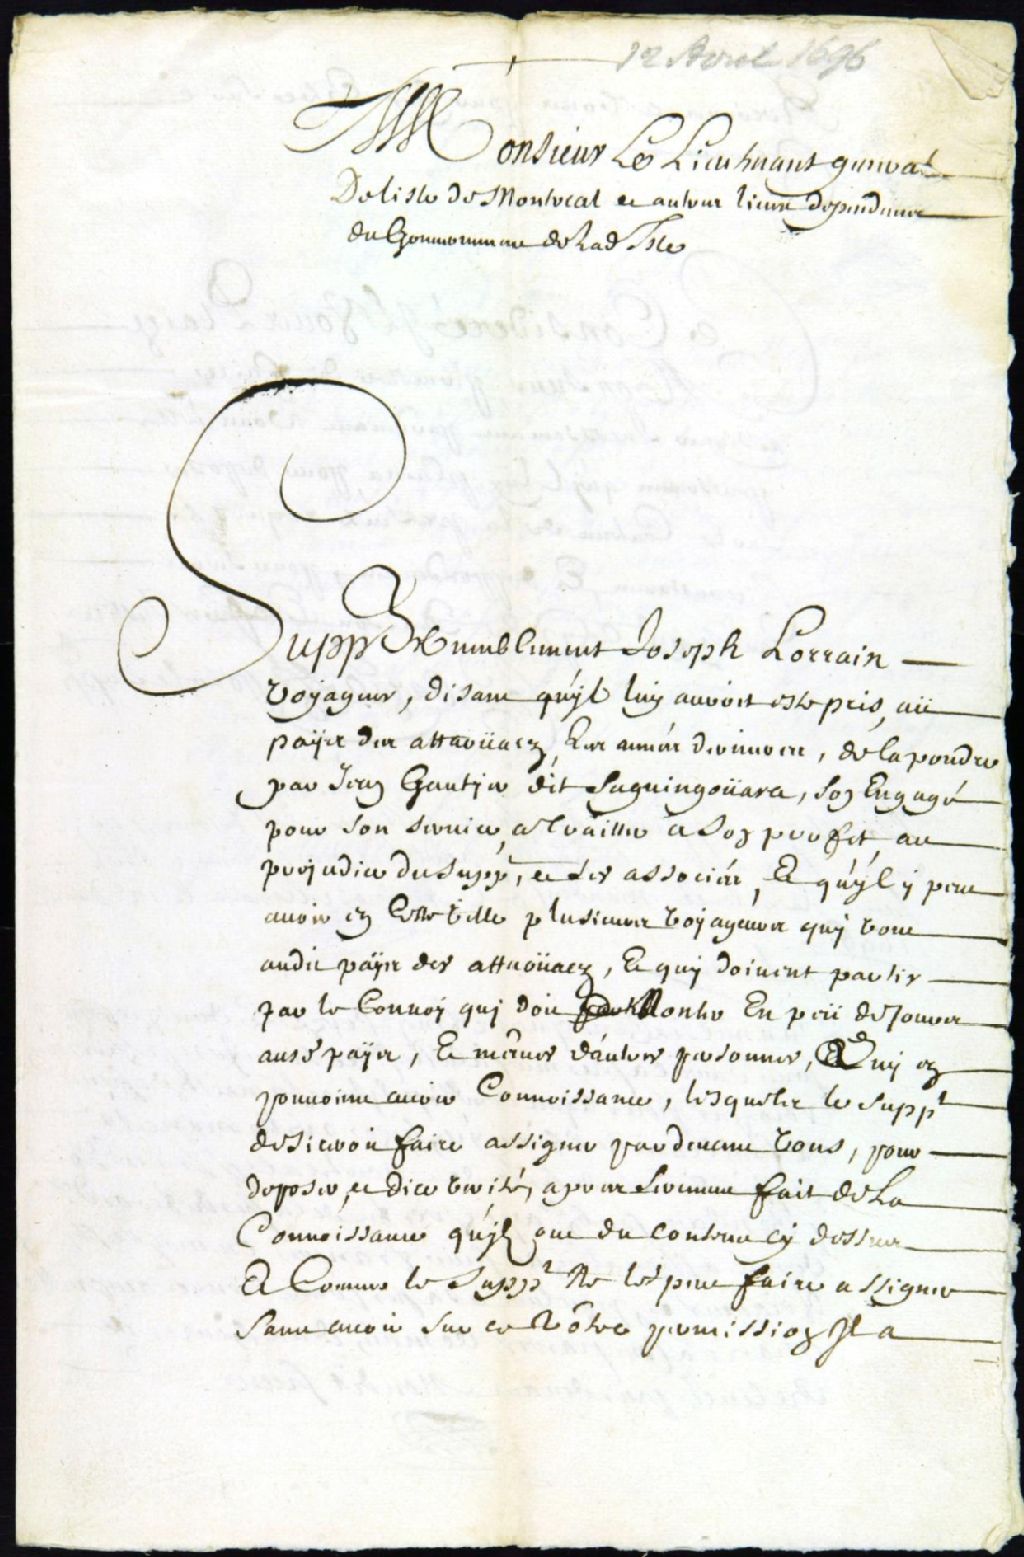 12 Avril 1696
Monsieur Le Lieutenant general
De lisle de Montreal et autres lieux dependance
du Gouvernement de Lad Isle
Supp Humblement Joseph Lorrain
voyageur, disant qu'yl luy auroit esté pris, aü
païyr des attaoüacz, les années dernieres, de la poudre
par Jean Gautjer dit Saguingoüara, son Engagé
pour son service, et traitter a son proffit, au
prejudice du supp, et ses associés, Et qu'yl y peut
avoir en Cette ville plusieurs voyageurs quy vont
audit païyr des attaoüacz, Et quy doivent partir
par le Convoy quj doit Monter En peü de Jours
aus païyr, Et mêmes d'autres personnes, Quy en
pouroient avoir Connoissance, lesquels le Suppt
desireroit faire assigner pardevant vous, pour
deposer, et dire verité, apres Serment fait de La
Connoissance qu'jlz ont du contenu cy dessus
Et Comme le Suppt Ne les peut faire assigner
sans avoir sur ce vôtre permission Jl a